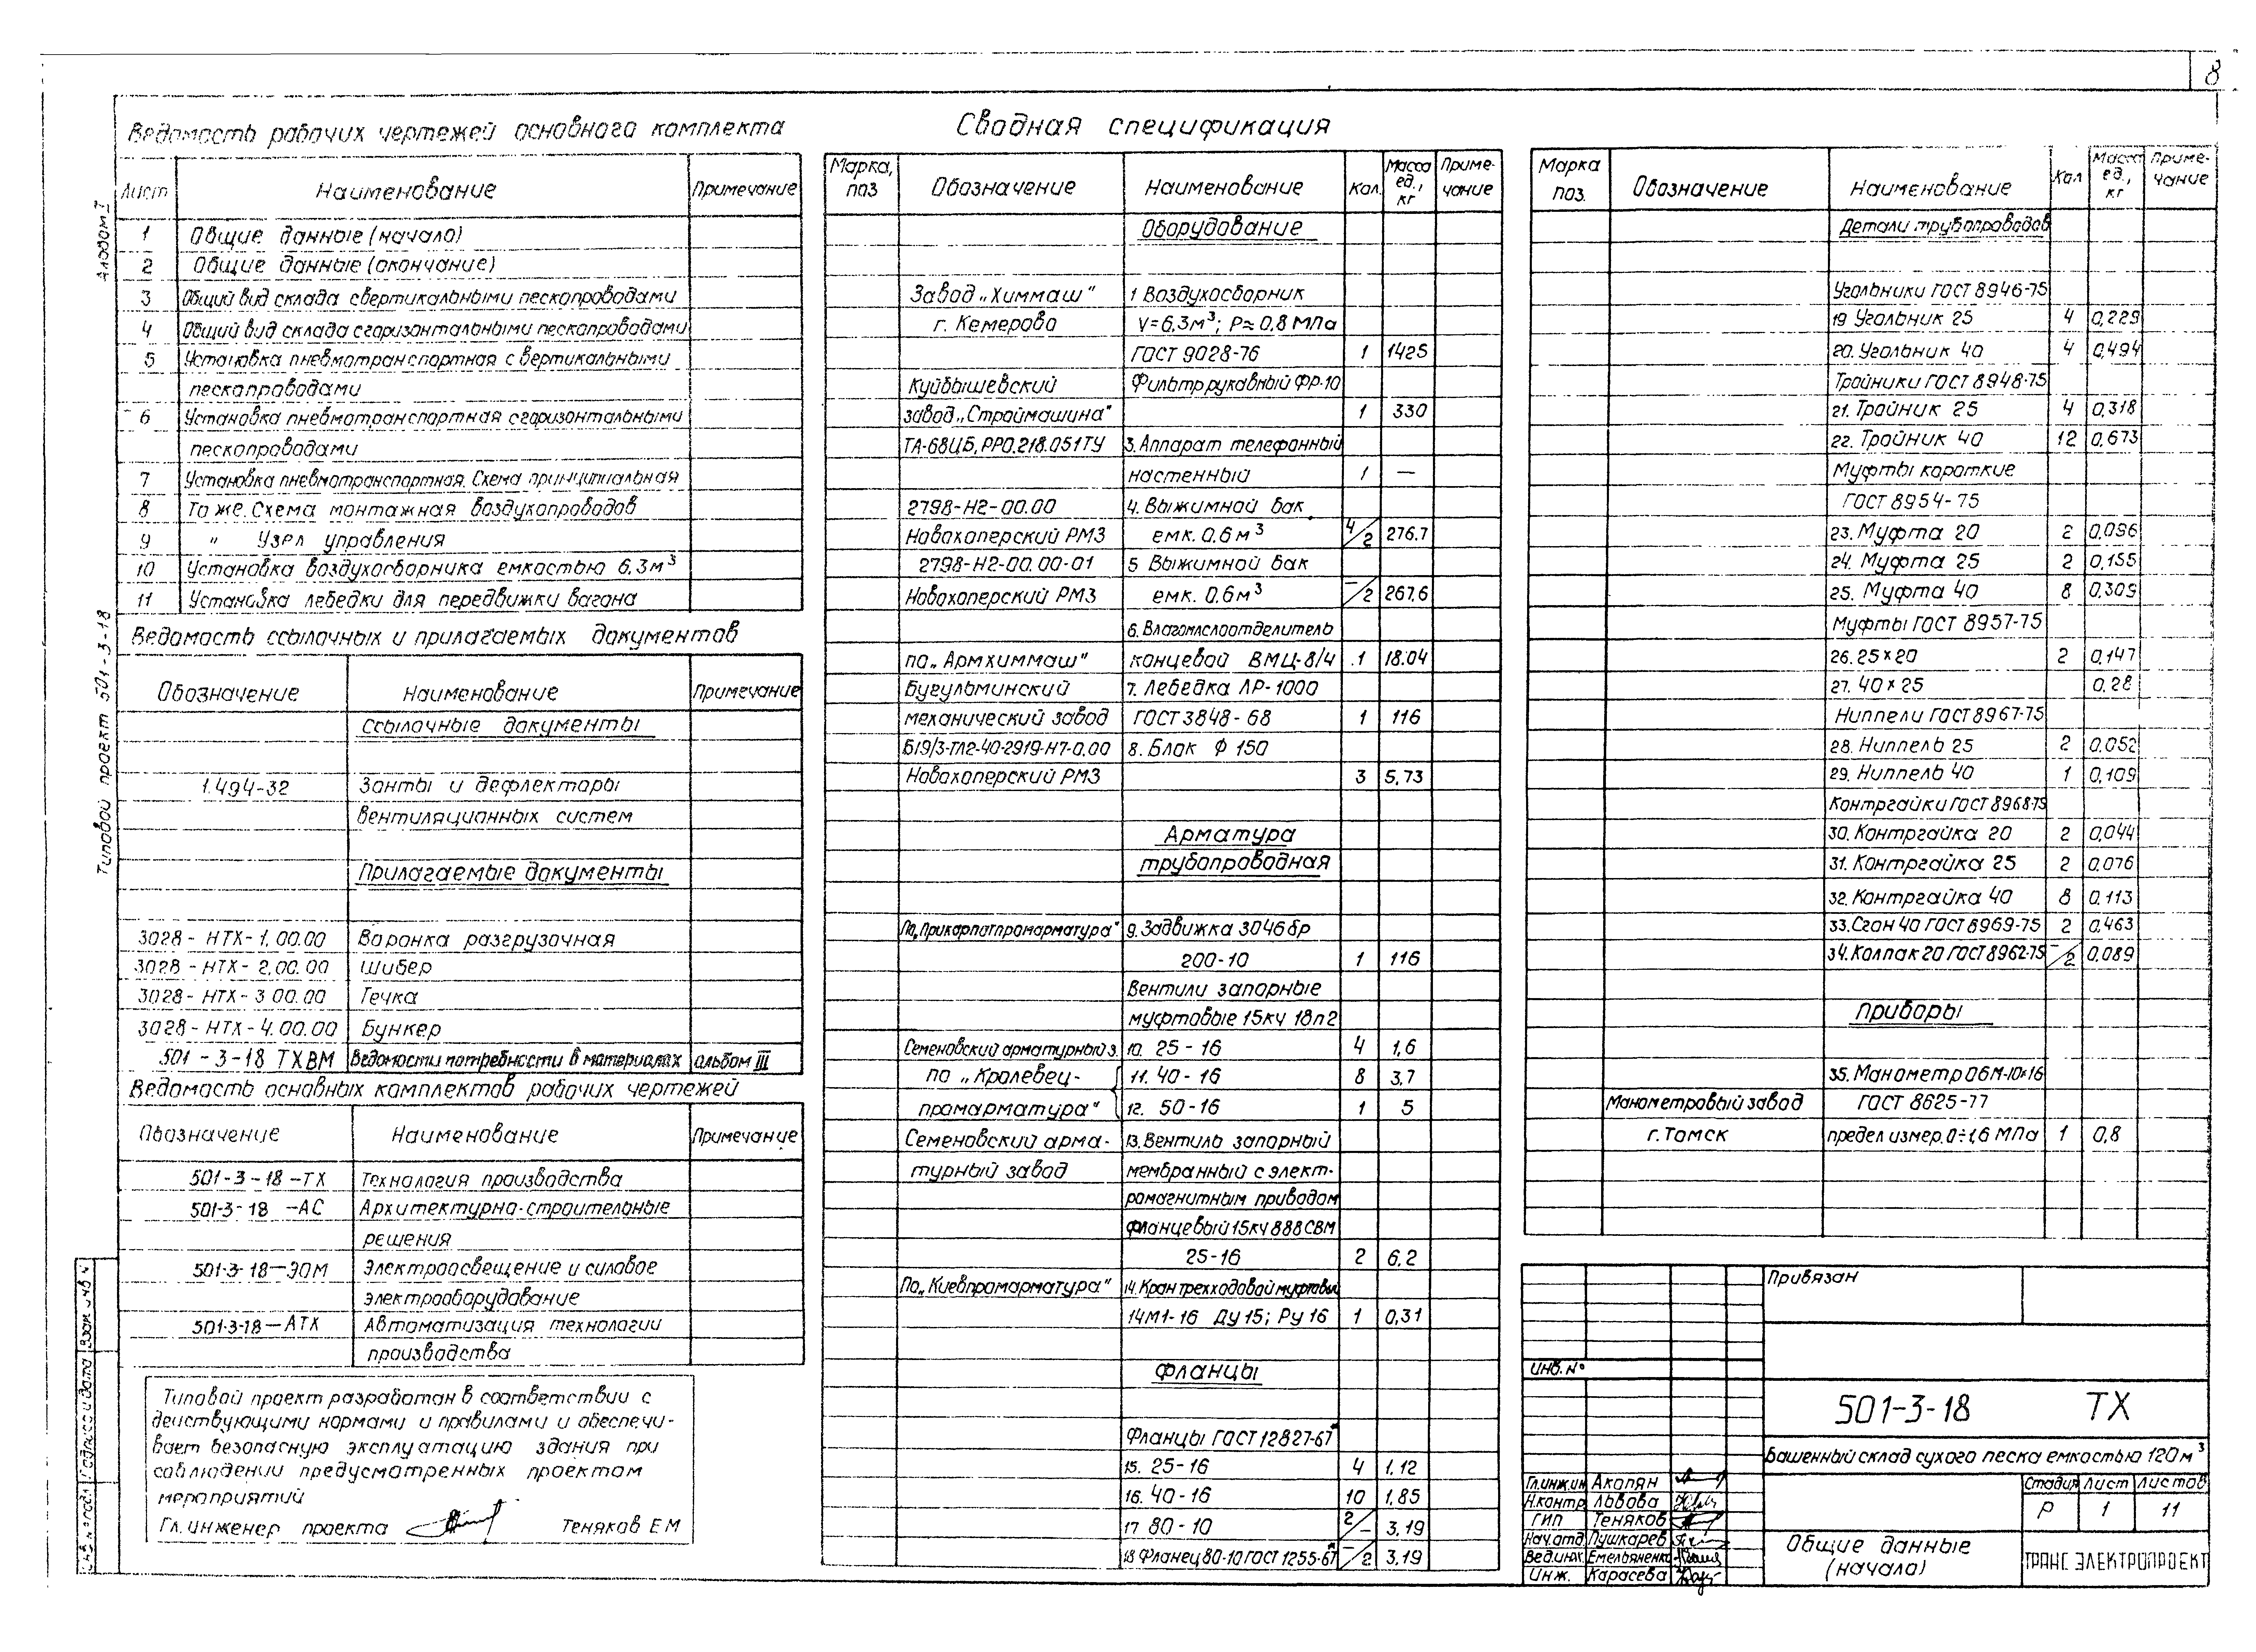 8
Альбом I
Типовой проект 501-3-18
Ведомость рабочих чертежей основного комплекта
Лист Наименование Примечание
1 Общие данные (начало)
2 Общие данные (окончание)
3 Общий вид склада с вертикальными пескопроводами
4 Общий вид склада с горизонтальными пескопроводами
5 Установка пневмотранспортная с вертикальными
пескопроводами
6 Установка пневмотранспортная с горизонтальными
пескопроводами
7 Установка пневмотранспортная. Схема принципиальная
8 То же. Схема монтажная воздухопроводов
9 " Узел управления
10 Установка воздухосборника емкостью 6,3 м³
11 Установка лебедки для передвижки вагона
Ведомость ссылочных и прилагаемых документов
Обозначение Наименование Примечание
Ссылочные документы
1.494-32 Зонты и дефлекторы
вентиляционных систем
Прилагаемые документы
3028-НТХ-1.00.00 Воронка разгрузочная
3028-НТХ-2.00.00 Шибер
3028-НТХ-3 00.00 Течка
3028-НТХ-4.00.00 Бункер
501-3-18 ТХВМ Ведомости потребности в материалах альбом III
Ведомость основных комплектов рабочих чертежей
Обозначение Наименование Примечание
501-3-18-ТХ Технология производства
501-3-18-АС Архитектурно-строительные
решения
501-3-18-ЭОМ Электроосвещение и силовое
электрооборудование
501-3-18-АТХ Автоматизация технологии
производства
Типовой проект разработан в соответствии с
действующими нормами и правилами и обеспечи-
вает безопасную эксплуатацию здания при
соблюдении предусмотренных проектом
мероприятий
Гл. инженер проекта Теняков Е М
Сводная спецификация
Марка, поз Обозначение Наименование Кол. Масса ед., кг Приме-чание
Оборудование
Завод „Химмаш" 1 Воздухосборник
г. Кемерово V=6,3м³; Р≈0,8 МПа
ГОСТ 9028-76 1 1425
Куйбышевский Фильтр рукавный ФР-10
завод „Строймашина" 1 330
ТА-68ЦБ, РРО.218.051ТУ 3. Аппарат телефонный
настенный 1 —
2798-Н2-00.00 4. Выжимной бак
Новохоперский РМЗ емк. 0.6 м³ 4/2 276.7
2798-Н2-00.00-01 5 Выжимной бак
Новохоперский РМЗ емк. 0.6м³ -/2 267.6
6. Влагомаслоотделитель
по „Армхиммаш" концевой ВМЦ-8/4 1 18.04
Бугульминский 7. Лебедка ЛР-1000
механический завод ГОСТ 3848-68 1 116
Б19/3-ГЛ2-40-2919-Н7-0.00 8. Блок Ф 150
Новохоперский РМЗ 3 5,73
Арматура
трубопроводная
По„Прикарпатпромарматура" 9. Задвижка 3046бр
200-10 1 116
Вентили запорные
муфтовые 15кч 18п2
Семеновский арматурный з. 10. 25-16 4 1,6
по „Кролевец- 11. 40-16 8 3,7
промарматура" 12. 50-16 1 5
Семеновский арма- 13. Вентиль запорный
турный завод мембранный с элект-
ромагнитным приводом
фланцевый 15кч 888 СВМ
25-16 2 6,2
По„Киевпромарматура" 14. Кран трехходовой муфтовый
14М1-16 Ду 15; Ру 16 1 0,31
Фланцы
Фланцы ГОСТ 12827-67*
15. 25-16 4 1,12
16. 40-16 10 1,85
17 80-10 2/- 3,19
18 Фланец 80-10 ГОСТ 1255-67* -/2 3,19
Марка поз. Обозначение Наименование Кол Масса ед., кг Приме-чание
Детали трубопроводов
Угольники ГОСТ 8946-75
19 Угольник 25 4 0,229
20. Угольник 40 4 0,494
Тройники ГОСТ 8948-75
21. Тройник 25 4 0,318
22. Тройник 40 12 0,673
Муфты короткие
ГОСТ 8954-75
23. Муфта 20 2 0,096
24. Муфта 25 2 0,155
25. Муфта 40 8 0,309
Муфты ГОСТ 8957-75
26. 25×20 2 0,147
27. 40×25 0,28
Ниппели ГОСТ 8967-75
28. Ниппель 25 2 0,052
29. Ниппель 40 1 0,109
Контргайки ГОСТ 8968-75
30. Контргайка 20 2 0,044
31. Контргайка 25 2 0.076
32. Контргайка 40 8 0.113
33. Сгон 40 ГОСТ 8969-75 2 0,463
34. Колпак 20 ГОСТ 8962-75 -/2 0,089
Приборы
35. Манометр ОБМ-10×16
Манометровый завод ГОСТ 8625-77
г. Томск предел измер. 0÷1,6 МПа 1 0,8
Привязан
Инв. №
501-3-18 ТХ
Башенный склад сухого песка емкостью 120 м³
Гл.инж.ин Акопян
Н.контр. Львова
ГИП Теняков
Нач.отд. Пушкарев
Вед.инж. Емельяненко
Инж. Карасева
Стадия Лист Листов
Р 1 11
Общие данные
(начало)
ТРАНСЭЛЕКТРОПРОЕКТ
Инв. № подл. Подпись и дата Взам. инв №